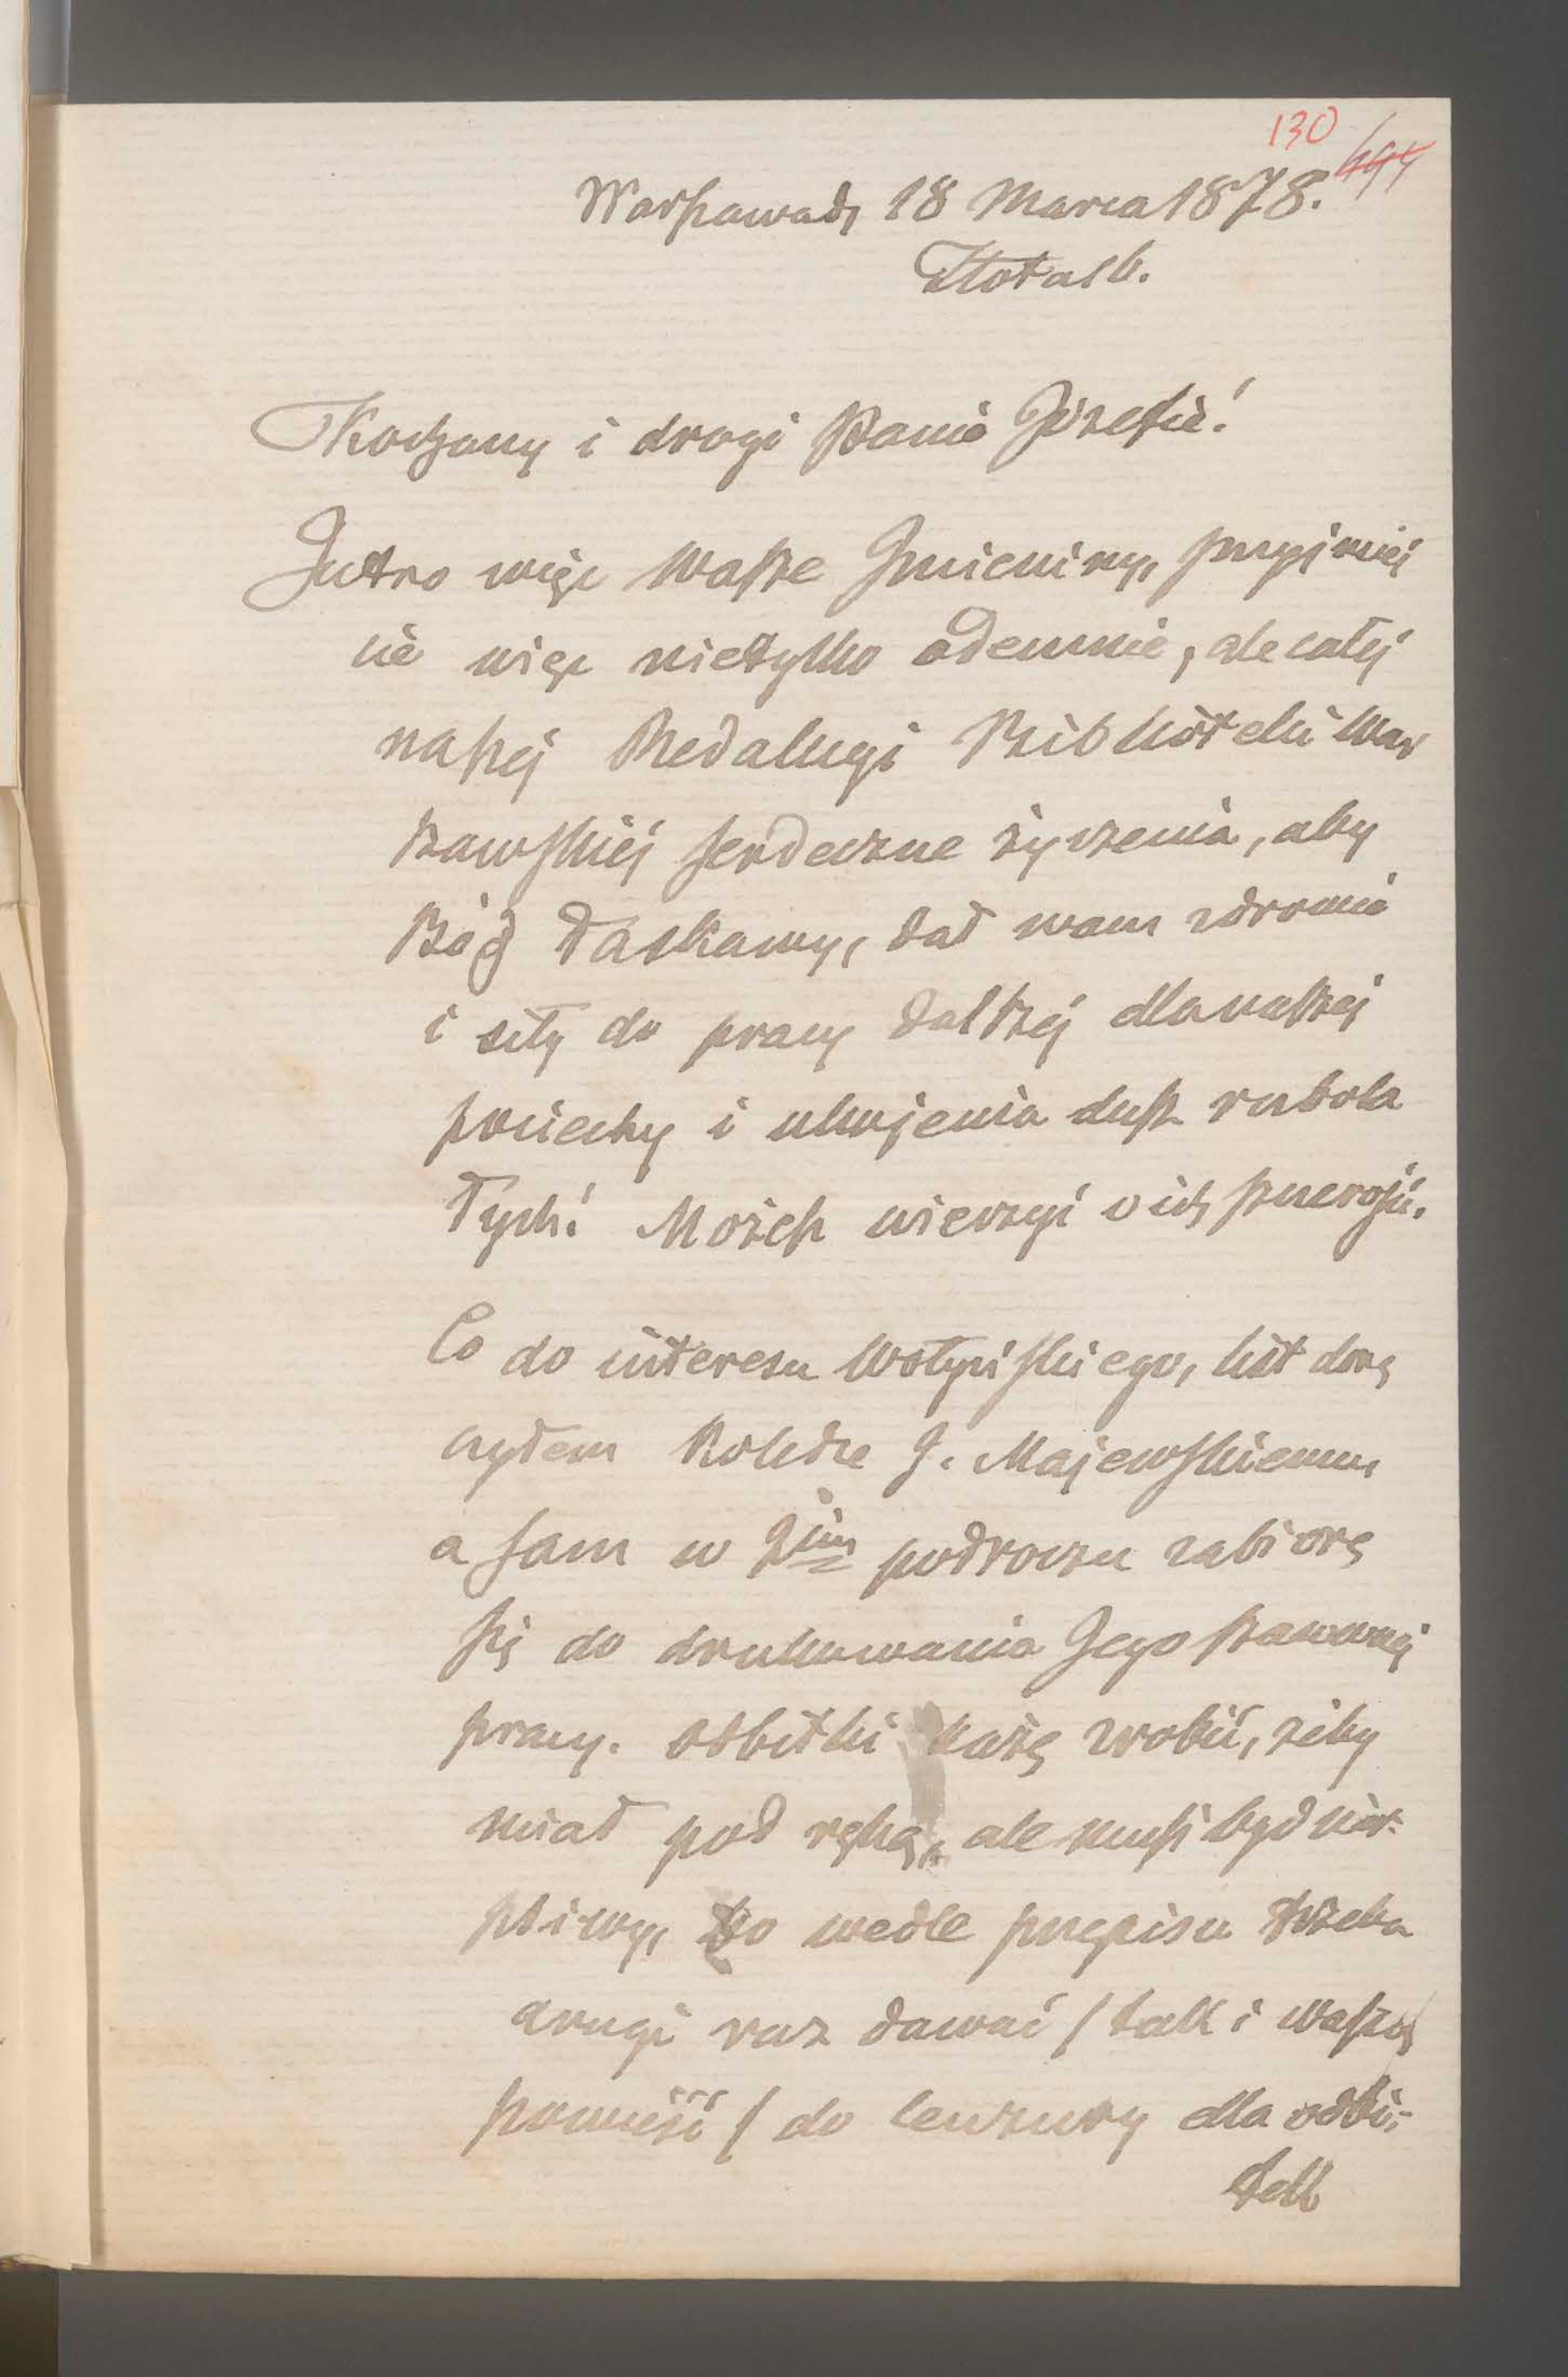 130
Warszawa d, 18 Marca 1878.
Złota 16.
Kochany i drogi Panie Józefie!
Jutro więc Wasze Imieniny, przyjmij
cie więc nietylko odemnie, ale całej
naszej Redakcyi Biblioteki War
szawskiéj serdeczne życzenia, aby
Bóg łaskawy, dał wam zdrowie
i siły do pracy dalszéj dla naszéj
pociechy i ukojenia dusz zubola
łych! Możesz wierzyć w ich szczerość.
Co do interesu Wołyńskiego, list dorę
czyłem Koledze J. Majewskiemu,
a sam w 2im podroczu zabiorę
się do drukowania Jego szanownéj
pracy. Odbitki każę zrobić, żeby
miał pod ręką, ale musi być cier-
pliwy, bo wedle przepisu trzeba
drugi raz dawać / tak i waszą
powieść / do Cenzury dla odbi-
tek